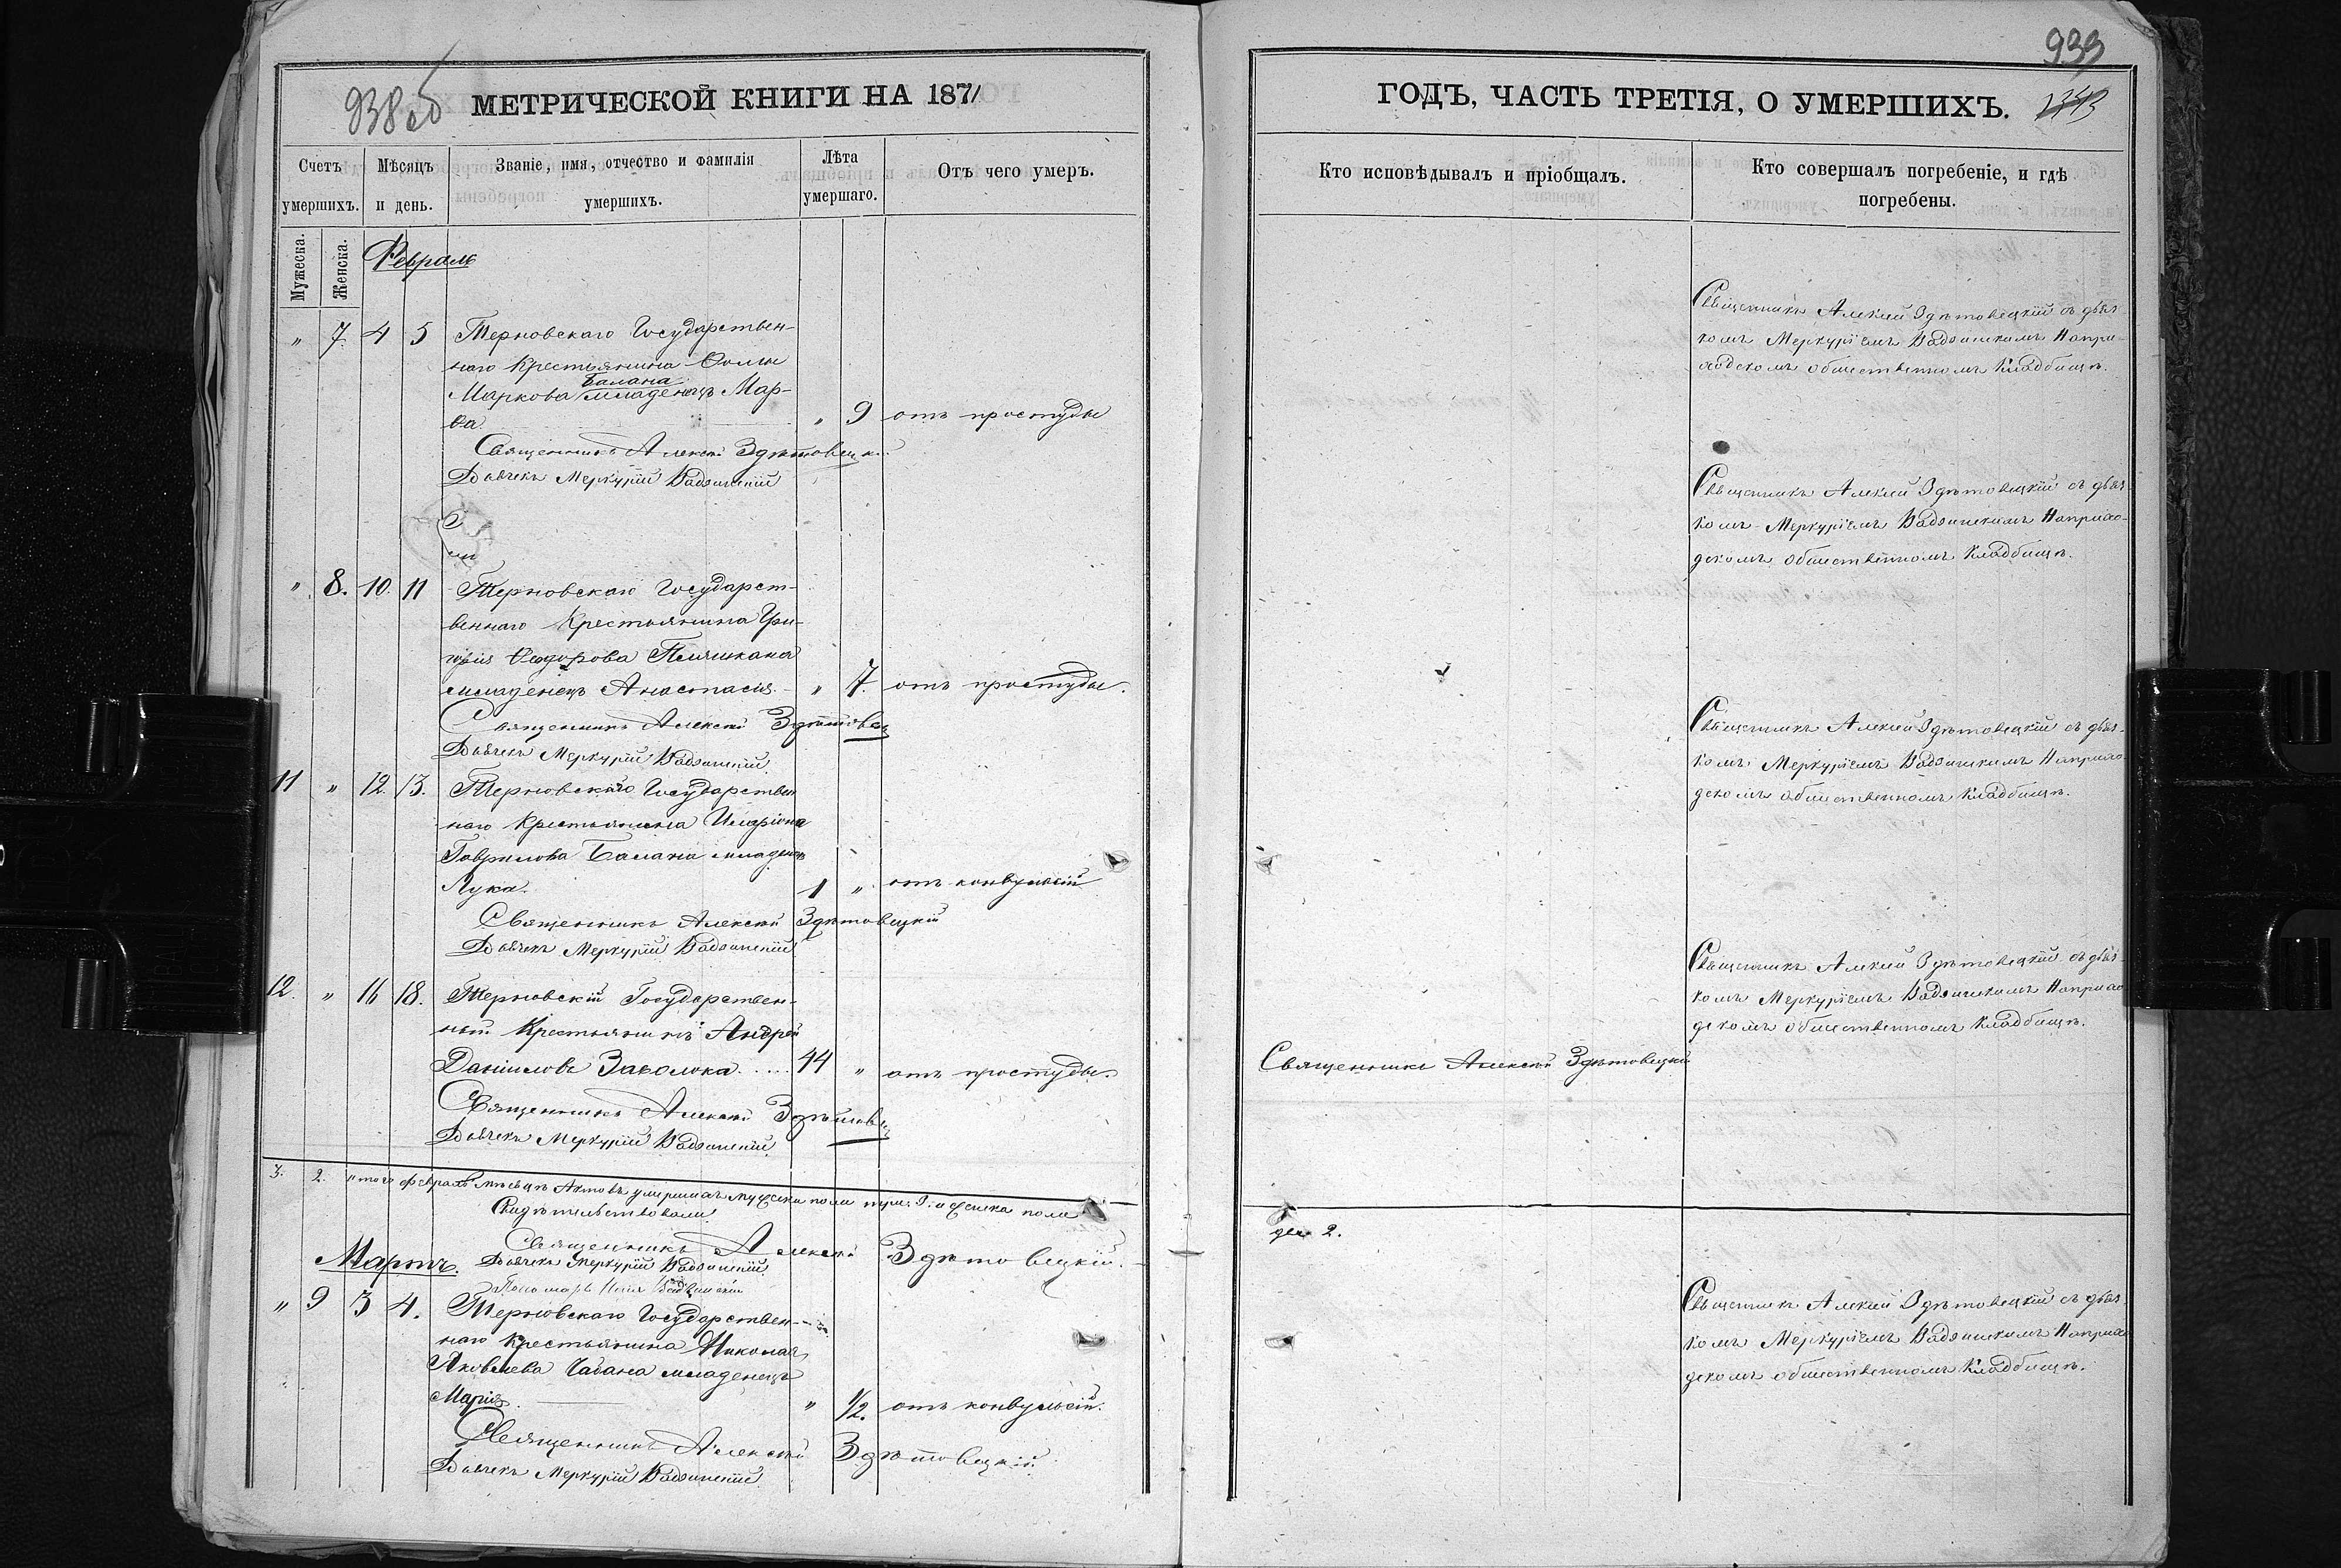 938 об
МЕТРИЧЕСКОЙ КНИГИ НА 1871
Счетъ умершихъ.
Мѣсяцъ и день.
Званіе, имя, отчество и фамилія умершихъ.
Лѣта умершаго.
Отъ чего умеръ.
Мужеска.
Женска.
Февраль
" 7. 4 5 Терновскаго Государствен-
наго Крестьянина Ѳомы
Балана
Маркова младенецъ Мар-
ѳа. " 9 отъ простуды
Священникъ Алексѣй Здѣтовецк.
Дьячекъ Меркурій Вадзинскій
" 8. 10. 11 Терновскаго Государст-
веннаго Крестьянина Гри-
горія Ѳеодорова
младенецъ Анастасія. " 7. отъ простуды.
Священникъ Алексѣй Здѣтовец
Дьячекъ Меркурій Вадзинскій.
11 " 12. 13. Терновскаго Государствен
наго Крестьянина Иларіона
Гаврилова Балана младенец
Лука. 1 " отъ конвульсій
Священникъ Алексѣй Здѣтовецкій
Дьячекъ Меркурій Вадзинскій
12. " 16 18. Терновскій Государствен-
ный Крестьянинъ Андрей
Даніиловъ Заволока..... 44 " отъ простуды.
Священникъ Алексѣй Здѣтовец
Дьячекъ Меркурій Вадзинскій.
3. 2. Итого февраль мѣсяцѣ Актовъ умершихъ мужеска пола три: 3. и женска пола
Свидѣтельствовали
Священникъ Алексѣй Здѣтовецкій.
Мартъ. Дьячекъ Меркурій Вадзинскій.
Пономарь
" 9 3 4. Терновскаго Государствен-
наго Крестьянина Николая
Яковлева Чабана младенецъ
Марія. " 1/2. отъ конвульсій.
Священникъ Алексѣй Здѣтовецкій.
Дьячекъ Меркурій Вадзинскій.
939
ГОДЪ, ЧАСТЬ ТРЕТІЯ, О УМЕРШИХЪ.
Кто исповѣдывалъ и пріобщалъ.
Кто совершалъ погребеніе, и гдѣ
погребены.
Священникъ Алексій Здѣтовецкій съ дьяч
комъ Меркуріемъ Вадзинскимъ На при-
ходскомъ общественномъ Кладбищѣ.
Священникъ Алексій Здѣтовецкій съ дьяч
комъ Меркуріемъ Вадзинскимъ На прихо-
дскомъ общественномъ Кладбищѣ.
Священникъ Алексій Здѣтовецкій съ дьяч-
комъ Меркуріемъ Вадзинскимъ На прихо
дскомъ общественномъ Кладбищѣ.
Священникъ Алексій Здѣтовецкій съ дьяч
комъ Меркуріемъ Вадзинскимъ На прихо
дскомъ общественномъ Кладбищѣ.
Священникъ Алексѣй Здѣтовецкій
две 2.
Священникъ Алексій Здѣтовецкій съ дьяч
комъ Меркуріемъ Вадзинскимъ На прихо
дскомъ общественномъ Кладбищѣ.